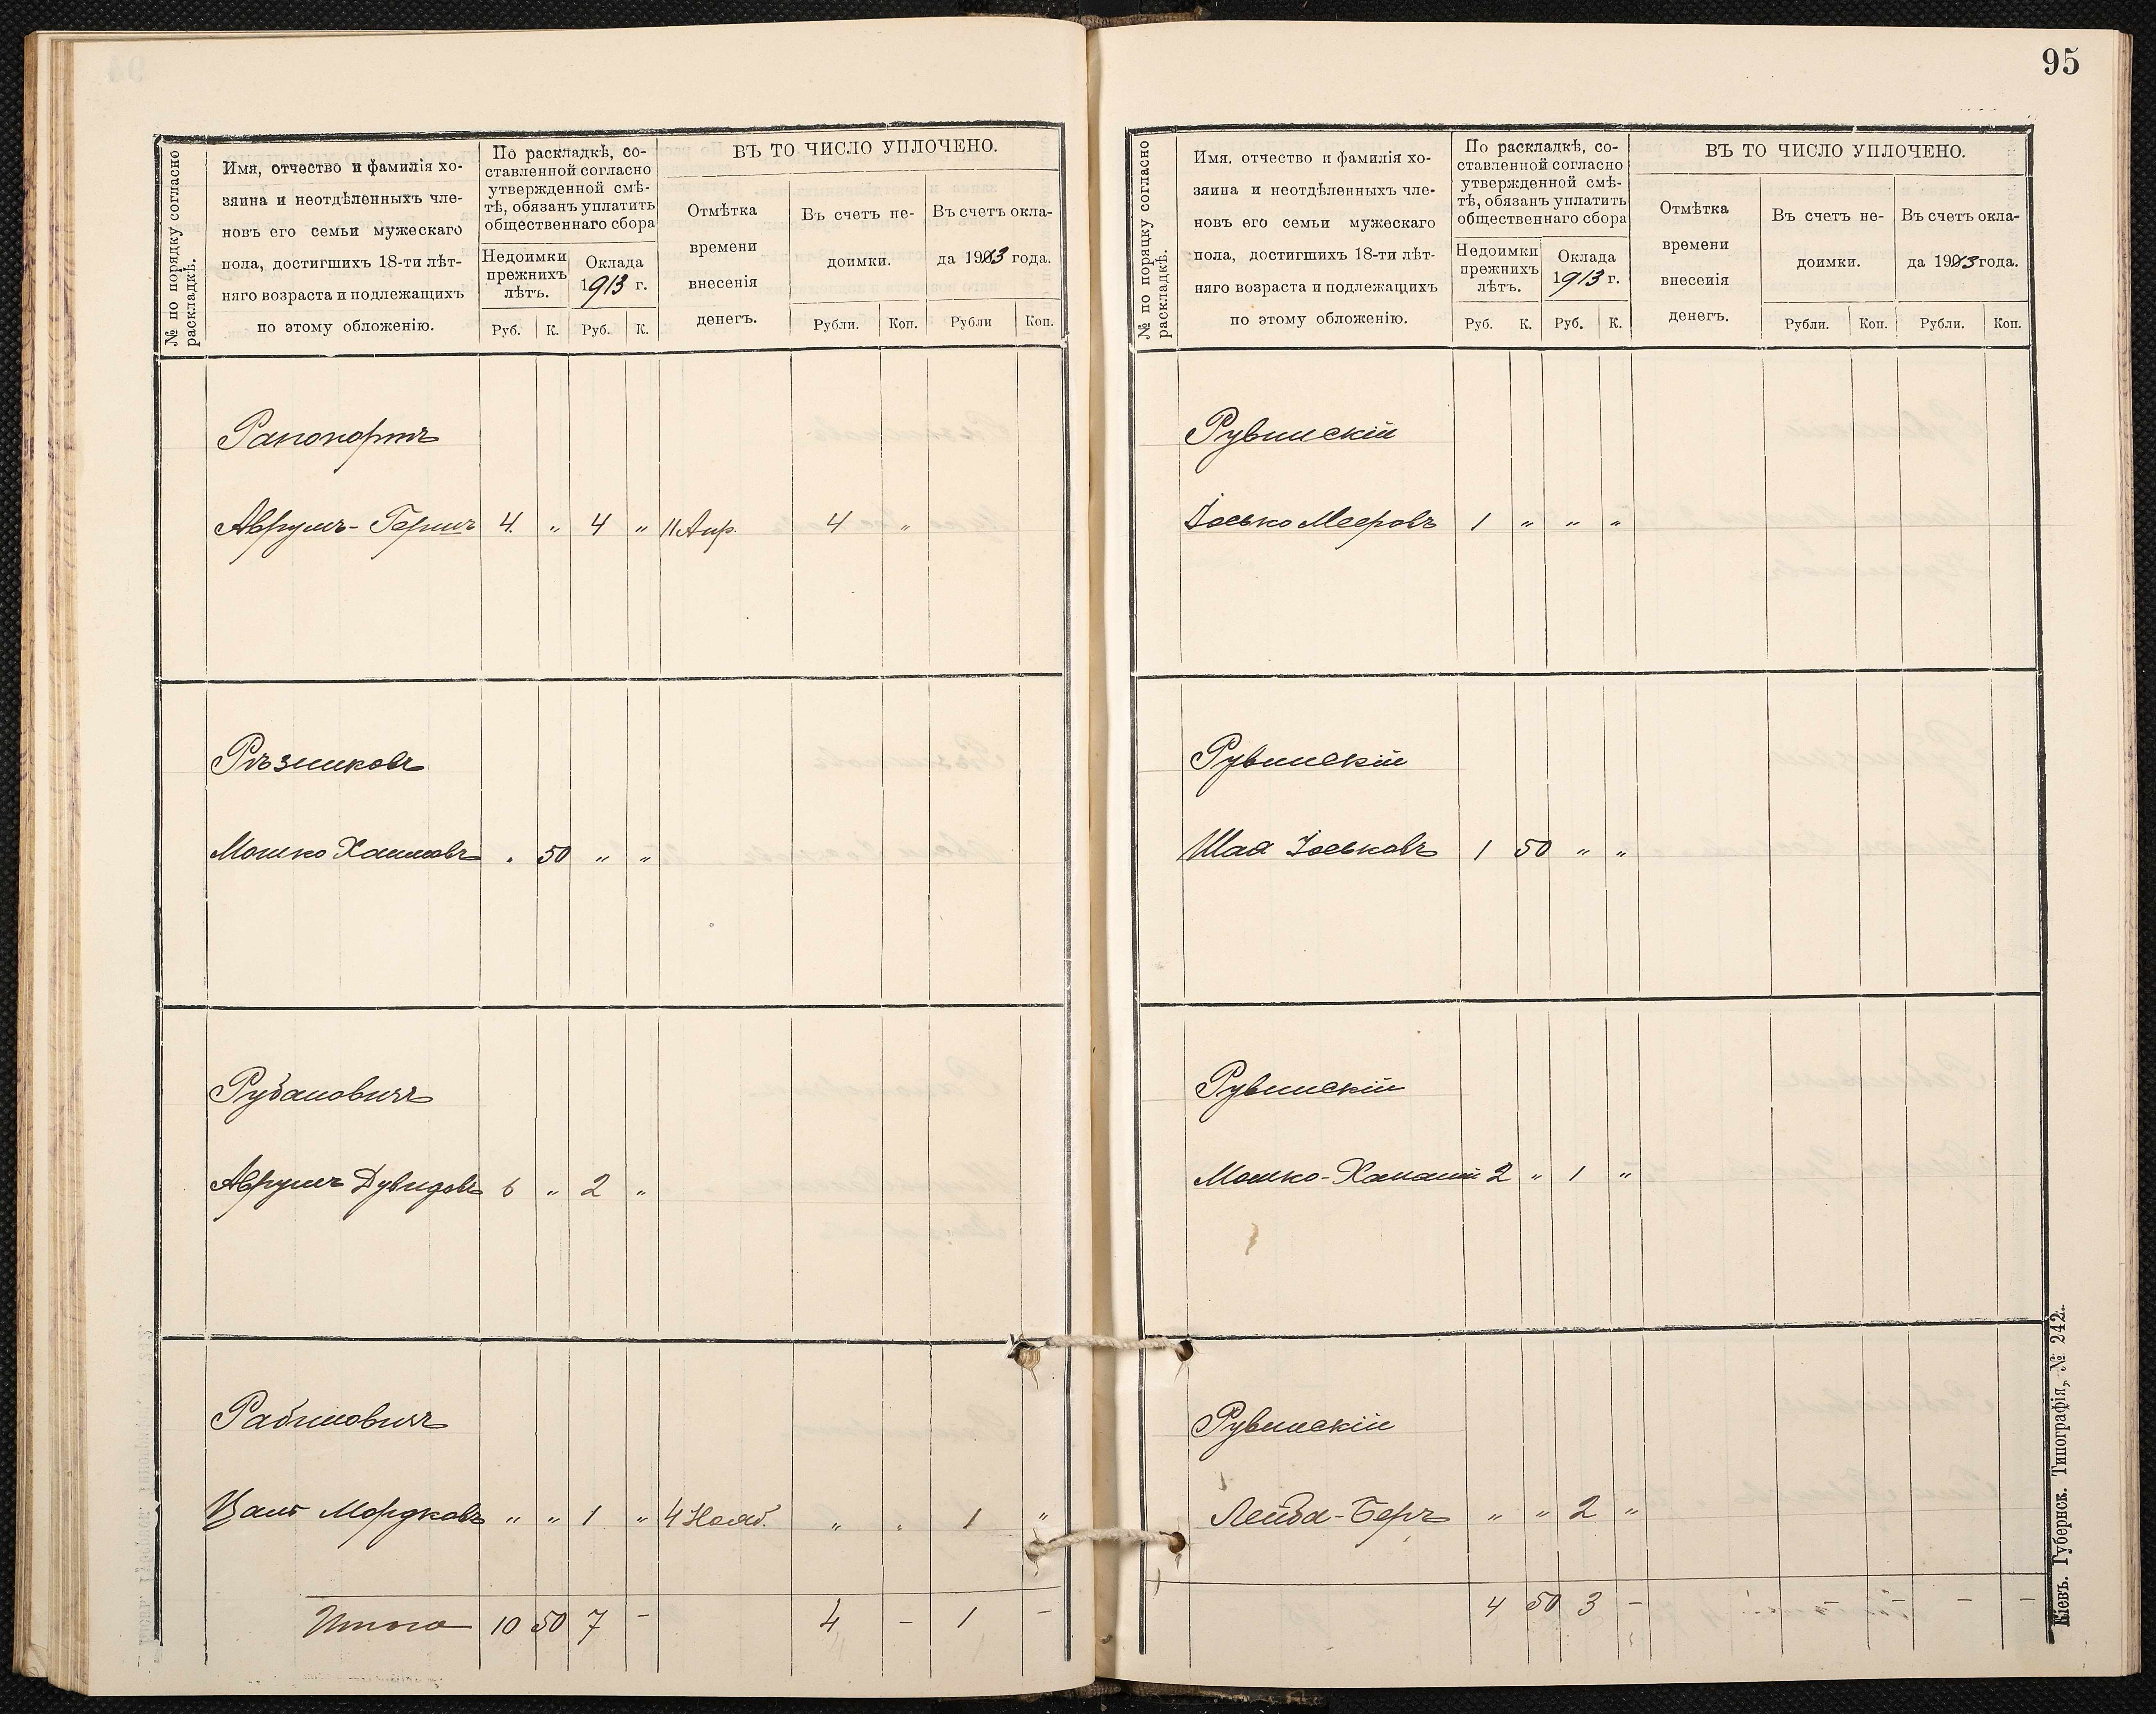 № по порядку согласно
раскладкѣ.
Имя, отчество и фамилія хо-
зяина и неотдѣленныхъ чле-
новъ его семьи мужескаго
пола, достигшихъ 18-ти лѣт-
няго возраста и подлежащихъ
по этому обложенію.
По раскладкѣ, со-
ставленной согласно
утвержденной смѣ-
тѣ, обязанъ уплатить
общественнаго сбора
Недоимки
прежнихъ
лѣтъ.
Оклада
1913 г.
Руб. К. Руб. К.
ВЪ ТО ЧИСЛО УПЛОЧЕНО.
Отмѣтка
времени
внесенія
денегъ.
Въ счетъ не-
доимки.
Въ счетъ окла-
да 1913 года.
Рубли. Коп. Рубли Коп.
Рапопортъ
Аврумъ-Гершъ 4. " 4 " 11 Апр. 4 "
Рѣзниковъ
Мошко Хаимовъ " 50 " "
Рубановичъ
Аврумъ Дувидовъ 6 " 2 "
Рабиновичъ
Мордковъ " " 1 " 4 Нояб. " " 1 "
Итого 10 50 7 - 4 - 1 -
95
№ по порядку согласно
раскладкѣ.
Имя, отчество и фамилія хо-
зяина и неотдѣленныхъ чле-
новъ его семьи мужескаго
пола, достигшихъ 18-ти лѣт-
няго возраста и подлежащихъ
по этому обложенію.
По раскладкѣ, со-
ставленной согласно
утвержденной смѣ-
тѣ, обязанъ уплатить
общественнаго сбора
Недоимки
прежнихъ
лѣтъ.
Оклада
1913 г.
Руб. К. Руб. К.
ВЪ ТО ЧИСЛО УПЛОЧЕНО.
Отмѣтка
времени
внесенія
денегъ.
Въ счетъ не-
доимки.
Въ счетъ окла-
да 1913 года.
Рубли. Коп. Рубли. Коп.
Рувинскій
Іосько Мееровъ 1 " " "
Рувинскій
Шая Іоськовъ 1 50 " "
Рувинскій
Мошко-Хананій 2 " 1 "
Рувинскій
Лейба-Беръ " " 2 "
4 50 3 - - - - -
Кіевъ. Губернск. Типографія, № 242.